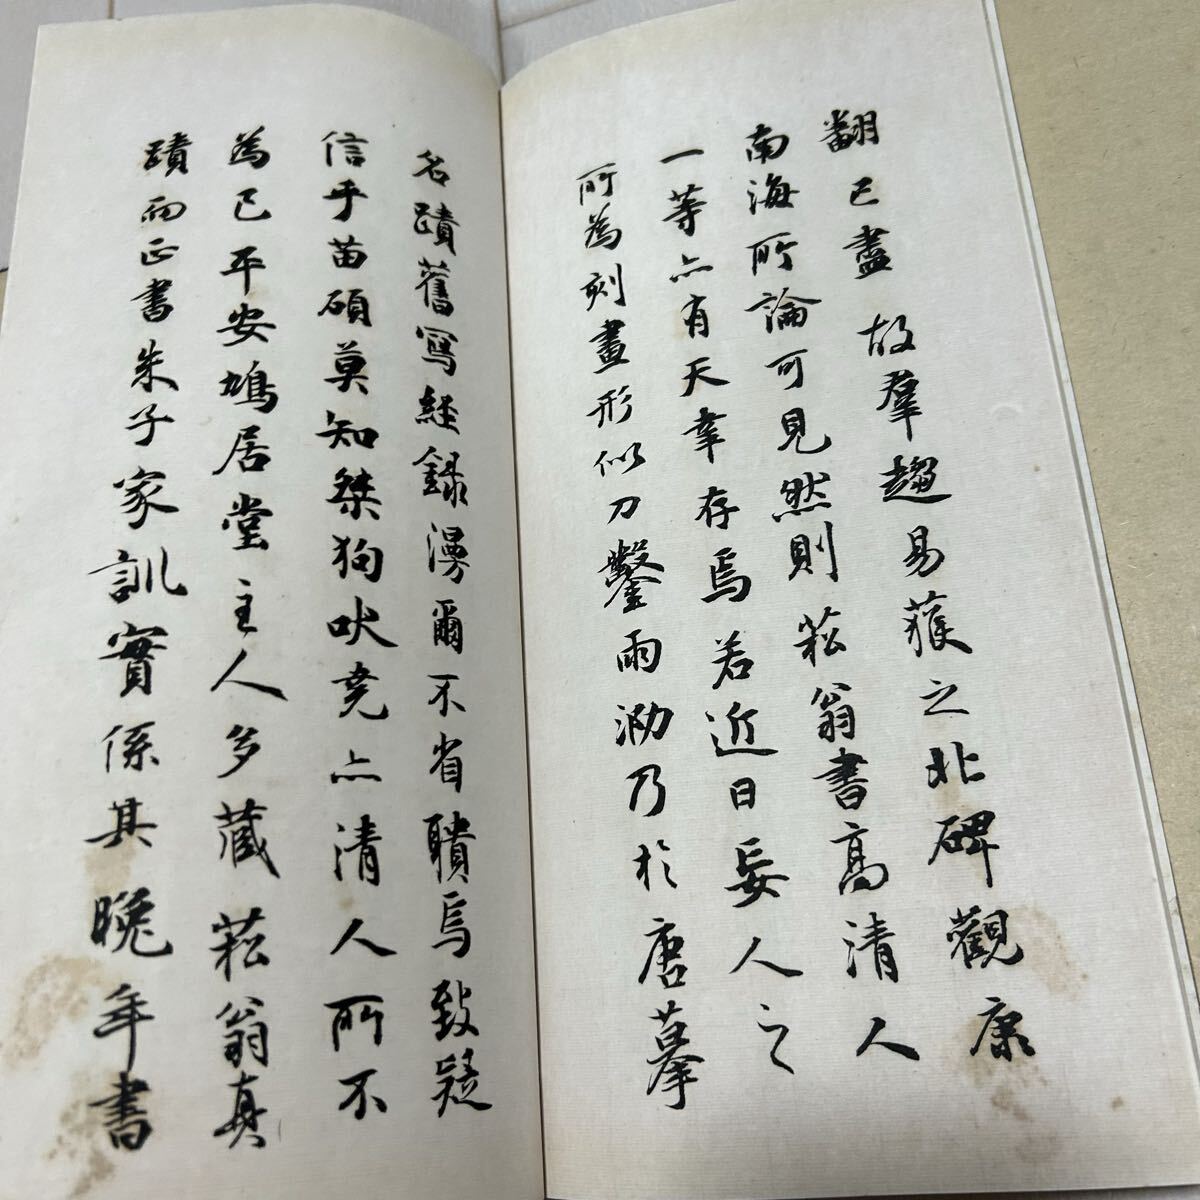 翻已盡故羣趨易獲之北碑觀康
南海所論可見然則菘翁書高清人
一等亦有天幸存焉若近日妄人之
所為刻畫形似刀鑿雨泐乃於唐摹
名蹟舊寫經錄漫爾不省聵焉致疑
信乎苗碩莫知桀狗吠堯亦清人所不
為已平安鳩居堂主人多蔵菘翁真
蹟而正書朱子家訓實係其晚年書